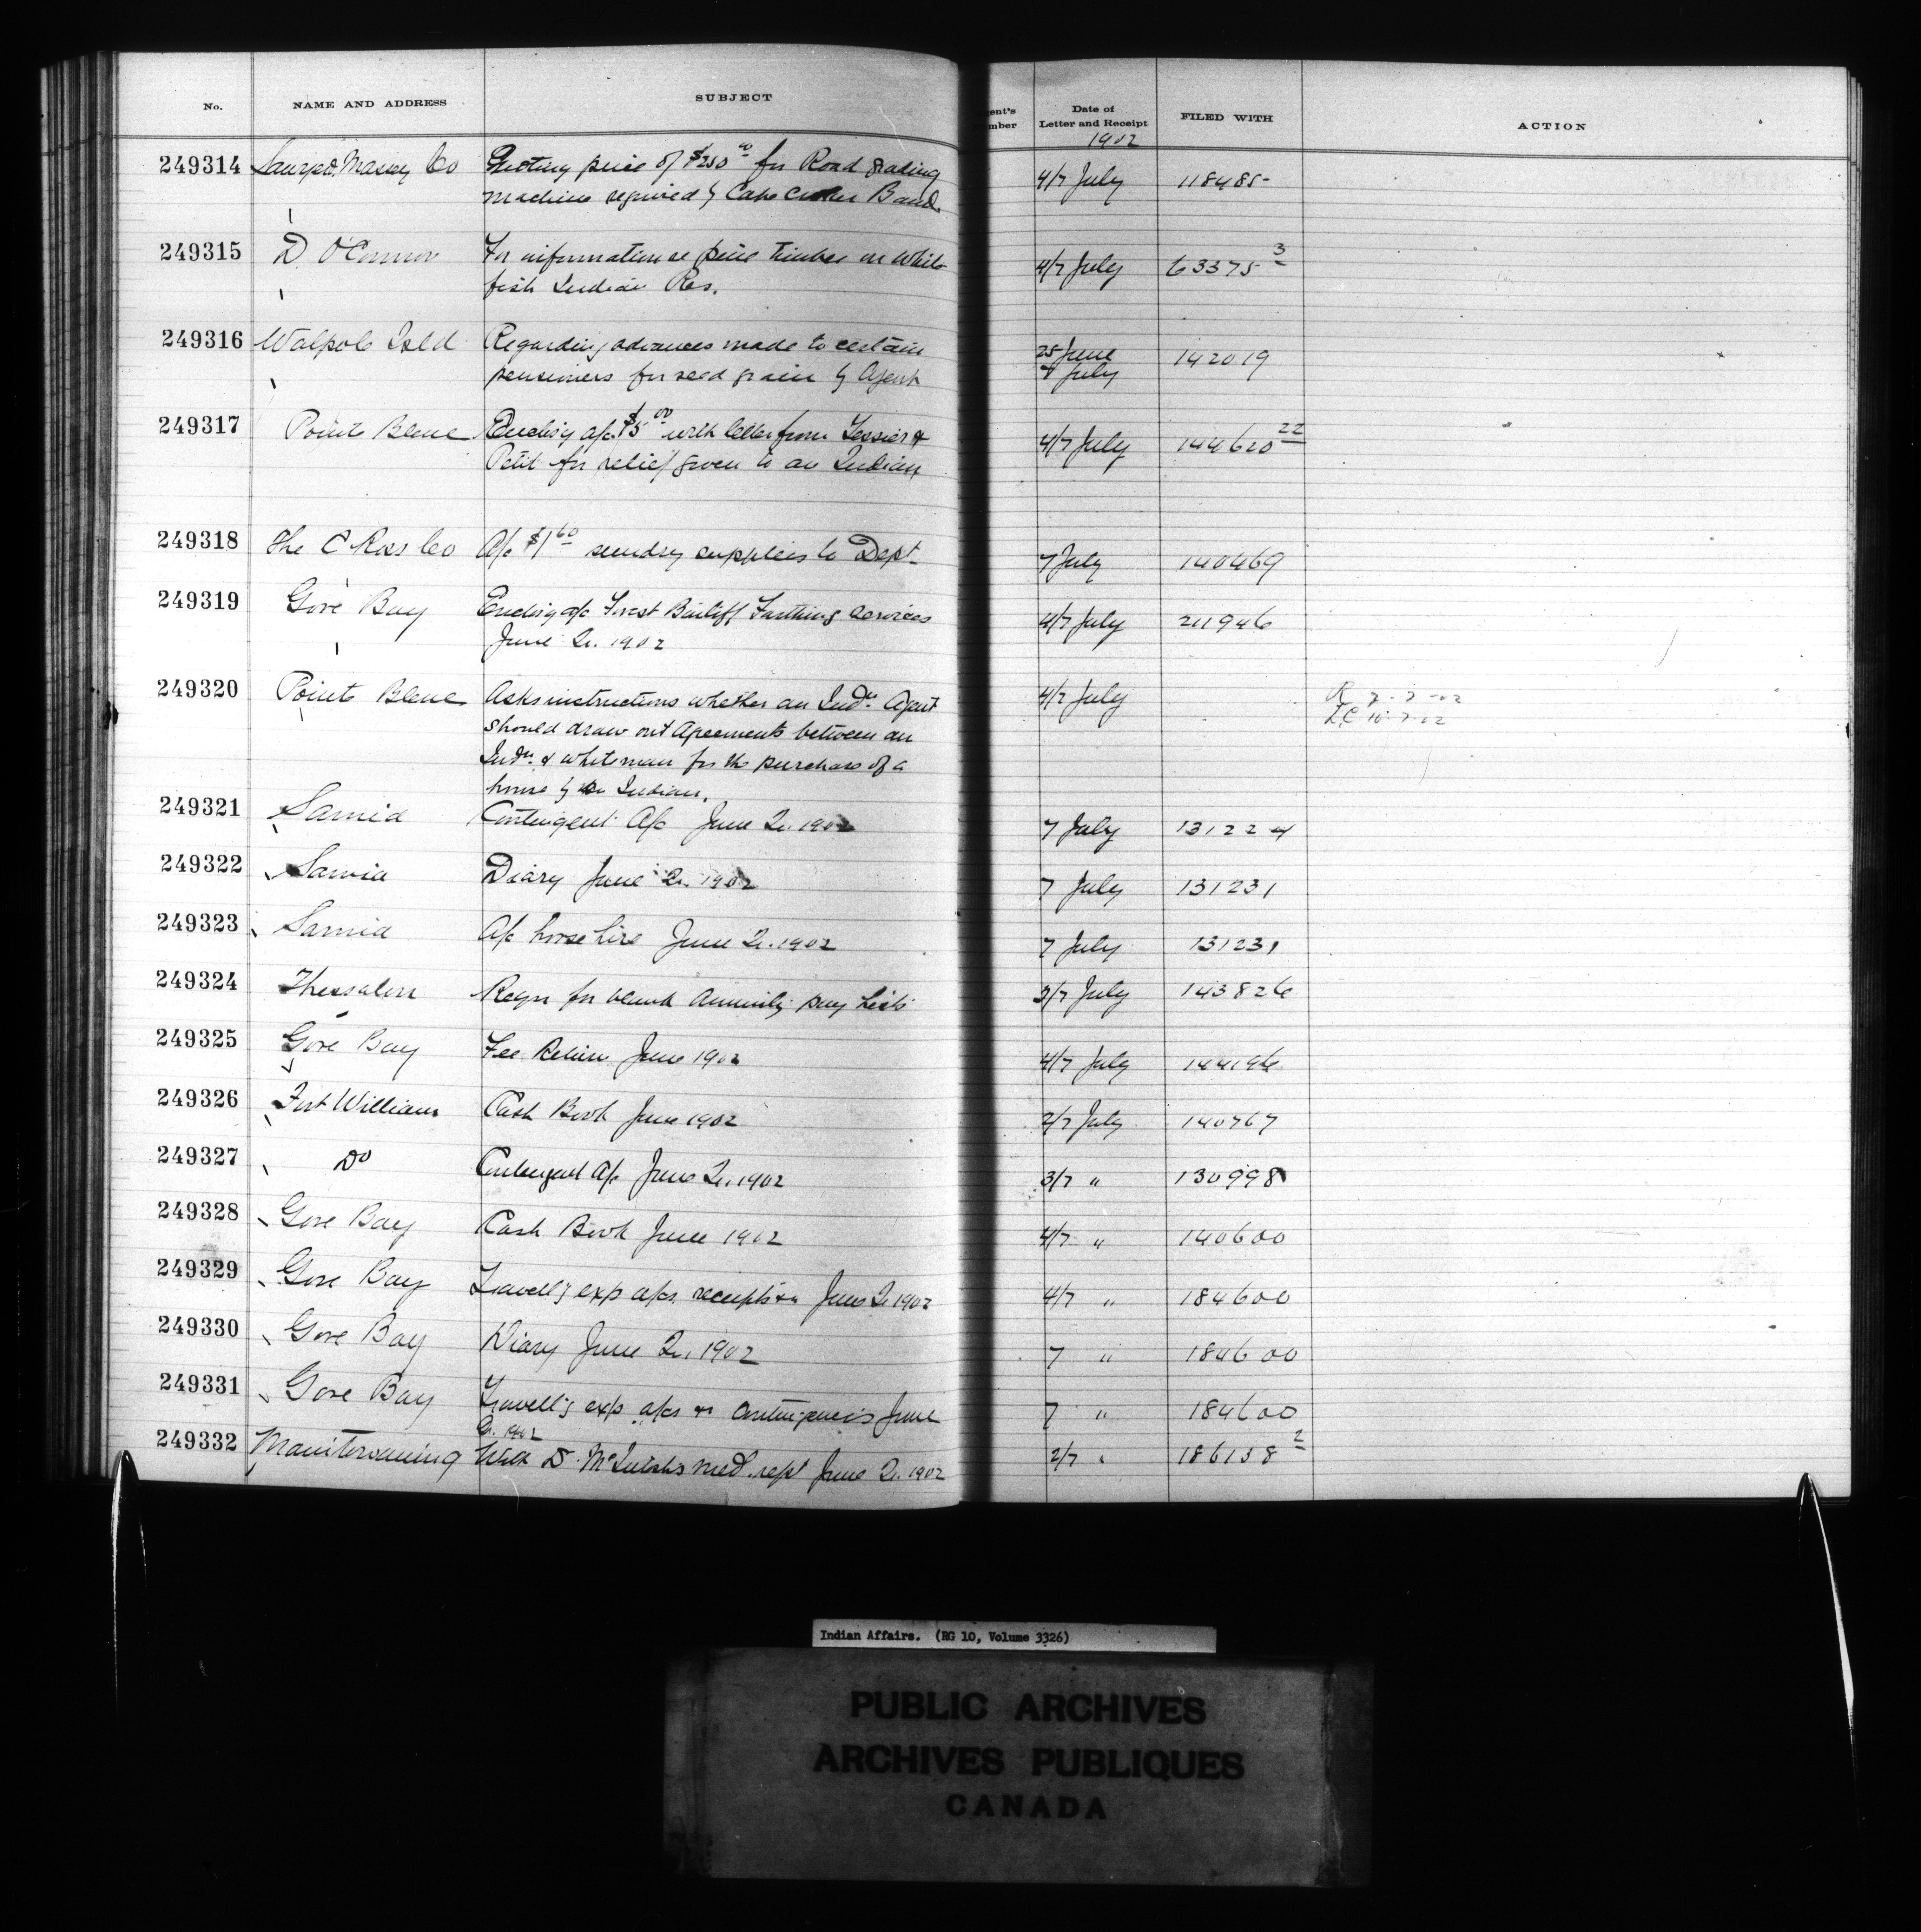 No. NAME AND ADDRESS SUBJECT ent's mber Date of Letter and Receipt FILED WITH ACTION
1902
249314 Massey Co Quoting price of $250 00 for Road grading 4/7 July 118485
machine required by Cape Croker Band
249315 D. O'Connor For information re pine timber on White 4/7 July 63375 3
fish Indian Res.
249316 Walpole Isld Regarding advances made to certain 25 June 142019
pensioners for seed grain by Agent July
249317 Pointe Bleue Enclos'g a/c $5 00 with letter from Tessier & 4/7 July 144620 22
Petit for relief given to an Indian
249318 The C Ross Co A/c $1 60 sundry supplies to Dept 7 July 140469
249319 Gore Bay Enclos'g a/c Forest Bailiff Farthing services 4/7 July 211946
June Qr. 1902
249320 Pointe Bleue Asks instructions whether an Indn. Agent 4/7 July R 7-7-02
should draw out Agreements between an L.C 10-7-02
Indn. & whiteman for the purchase of a
house by the Indian.
249321 Sarnia Contingent A/c June Qr. 1902 7 July 131224
249322 Sarnia Diary June Qr. 1902 7 July 131231
249323 Sarnia A/c horse hire June Qr. 1902 7 July 131231
249324 Thessalon Reqn for blank Annuity pay lists 3/7 July 143826
249325 Gore Bay Fee Return June 1902 4/7 July 144196
249326 Fort William Cash Book June 1902 2/7 July 140767
249327 Do Contingent A/c June Qr. 1902 3/7 " 130998
249328 Gore Bay Cash Book June 1902 4/7 " 140600
249329 Gore Bay Travell'g exp a/cs. receipts &c June Qr 1902 4/7 " 184600
249330 Gore Bay Diary June Qr. 1902 7 " 184600
249331 Gore Bay Travell'g exp a/cs & Contingencies June 7 " 184600
Qr. 1902
249332 Manitowaning With Dr. med. rept June Qr. 1902 2/7 " 186138 2
Indian Affairs. (RG 10, Volume 3326)
PUBLIC ARCHIVES
ARCHIVES PUBLIQUES
CANADA